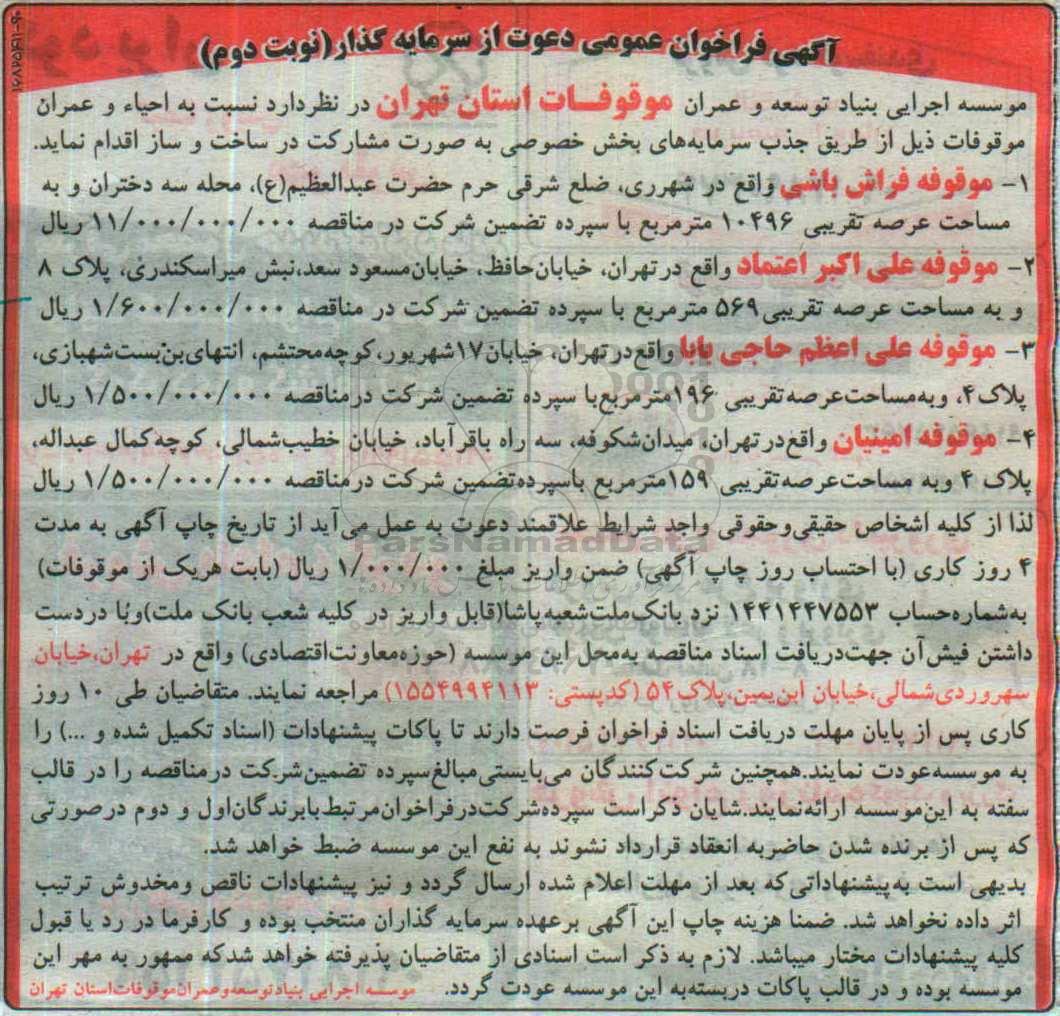 آگهی فراخوان عمومی دعوت از سرمایه گذار(نوبت دوم)
موسسه اجرایی بنیاد توسعه و عمران موقوفات استان تهران در نظردارد نسبت به احیاء و عمران
موقوفات ذیل از طریق جذب سرمایه‌های بخش خصوصی به صورت مشارکت در ساخت و ساز اقدام نماید.
۱- موقوفه فراش باشی واقع در شهرری، ضلع شرقی حرم حضرت عبدالعظیم(ع)، محله سه دختران و به
مساحت عرصه تقریبی ۱۰۴۹۶ مترمربع با سپرده تضمین شرکت در مناقصه ۱۱/۰۰۰/۰۰۰/۰۰۰ ریال
۲- موقوفه علی اکبر اعتماد واقع در تهران، خیابان حافظ، خیابان مسعود سعد،نبش میراسکندری، پلاک ۸
و به مساحت عرصه تقریبی ۵۶۹ مترمربع با سپرده تضمین شرکت در مناقصه ۱/۶۰۰/۰۰۰/۰۰۰ ریال
۳- موقوفه علی اعظم حاجی بابا واقع در تهران، خیابان ۱۷شهریور،کوچه محتشم، انتهای بن‌بست شهبازی،
پلاک ۴، و به مساحت عرصه تقریبی ۱۹۶مترمربع با سپرده تضمین شرکت در مناقصه ۱/۵۰۰/۰۰۰/۰۰۰ ریال
۴- موقوفه امینیان واقع در تهران، میدان شکوفه، سه راه باقرآباد، خیابان خطیب شمالی، کوچه کمال عبداله،
پلاک ۴ وبه مساحت عرصه تقریبی ۱۵۹مترمربع باسپرده تضمین شرکت در مناقصه ۱/۵۰۰/۰۰۰/۰۰۰ ریال
لذا از کلیه اشخاص حقیقی وحقوقی واجد شرایط علاقمند دعوت به عمل می آید از تاریخ چاپ آگهی به مدت
ParsNamadData
۴ روز کاری (با احتساب روز چاپ آگهی) ضمن واریز مبلغ ۱/۰۰۰/۰۰۰ ریال (بابت هریک از موقوفات)
به شماره حساب ۱۴۴۱۴۴۷۵۵۳ نزد بانک ملت شعبه پاشا(قابل واریز در کلیه شعب بانک ملت)وبا دردست
داشتن فیش آن جهت دریافت اسناد مناقصه به محل این موسسه (حوزه معاونت اقتصادی) واقع در تهران،خیابان
سهروردی شمالی،خیابان ابن یمین،پلاک ۵۴ (کدپستی: ۱۵۵۴۹۹۴۱۱۳) مراجعه نمایند. متقاضیان طی ۱۰ روز
کاری پس از پایان مهلت دریافت اسناد فراخوان فرصت دارند تا پاکات پیشنهادات (اسناد تکمیل شده و ...) را
به موسسه عودت نمایند.همچنین شرکت کنندگان می‌بایستی مبالغ سپرده تضمین شرکت در مناقصه را در قالب
سفته به این موسسه ارائه نمایند.شایان ذکر است سپرده شرکت در فراخوان مرتبط با برندگان اول و دوم در صورتی
که پس از برنده شدن حاضر به انعقاد قرارداد نشوند به نفع این موسسه ضبط خواهد شد.
بدیهی است به پیشنهاداتی که بعد از مهلت اعلام شده ارسال گردد و نیز پیشنهادات ناقص ومخدوش ترتیب
اثر داده نخواهد شد. ضمنا هزینه چاپ این آگهی برعهده سرمایه گذاران منتخب بوده و کارفرما در رد یا قبول
کلیه پیشنهادات مختار میباشد. لازم به ذکر است اسنادی از متقاضیان پذیرفته خواهد شدکه ممهور به مهر این
موسسه بوده و در قالب پاکات دربسته به این موسسه عودت گردد. موسسه اجرایی بنیاد توسعه و عمران موقوفات استان تهران